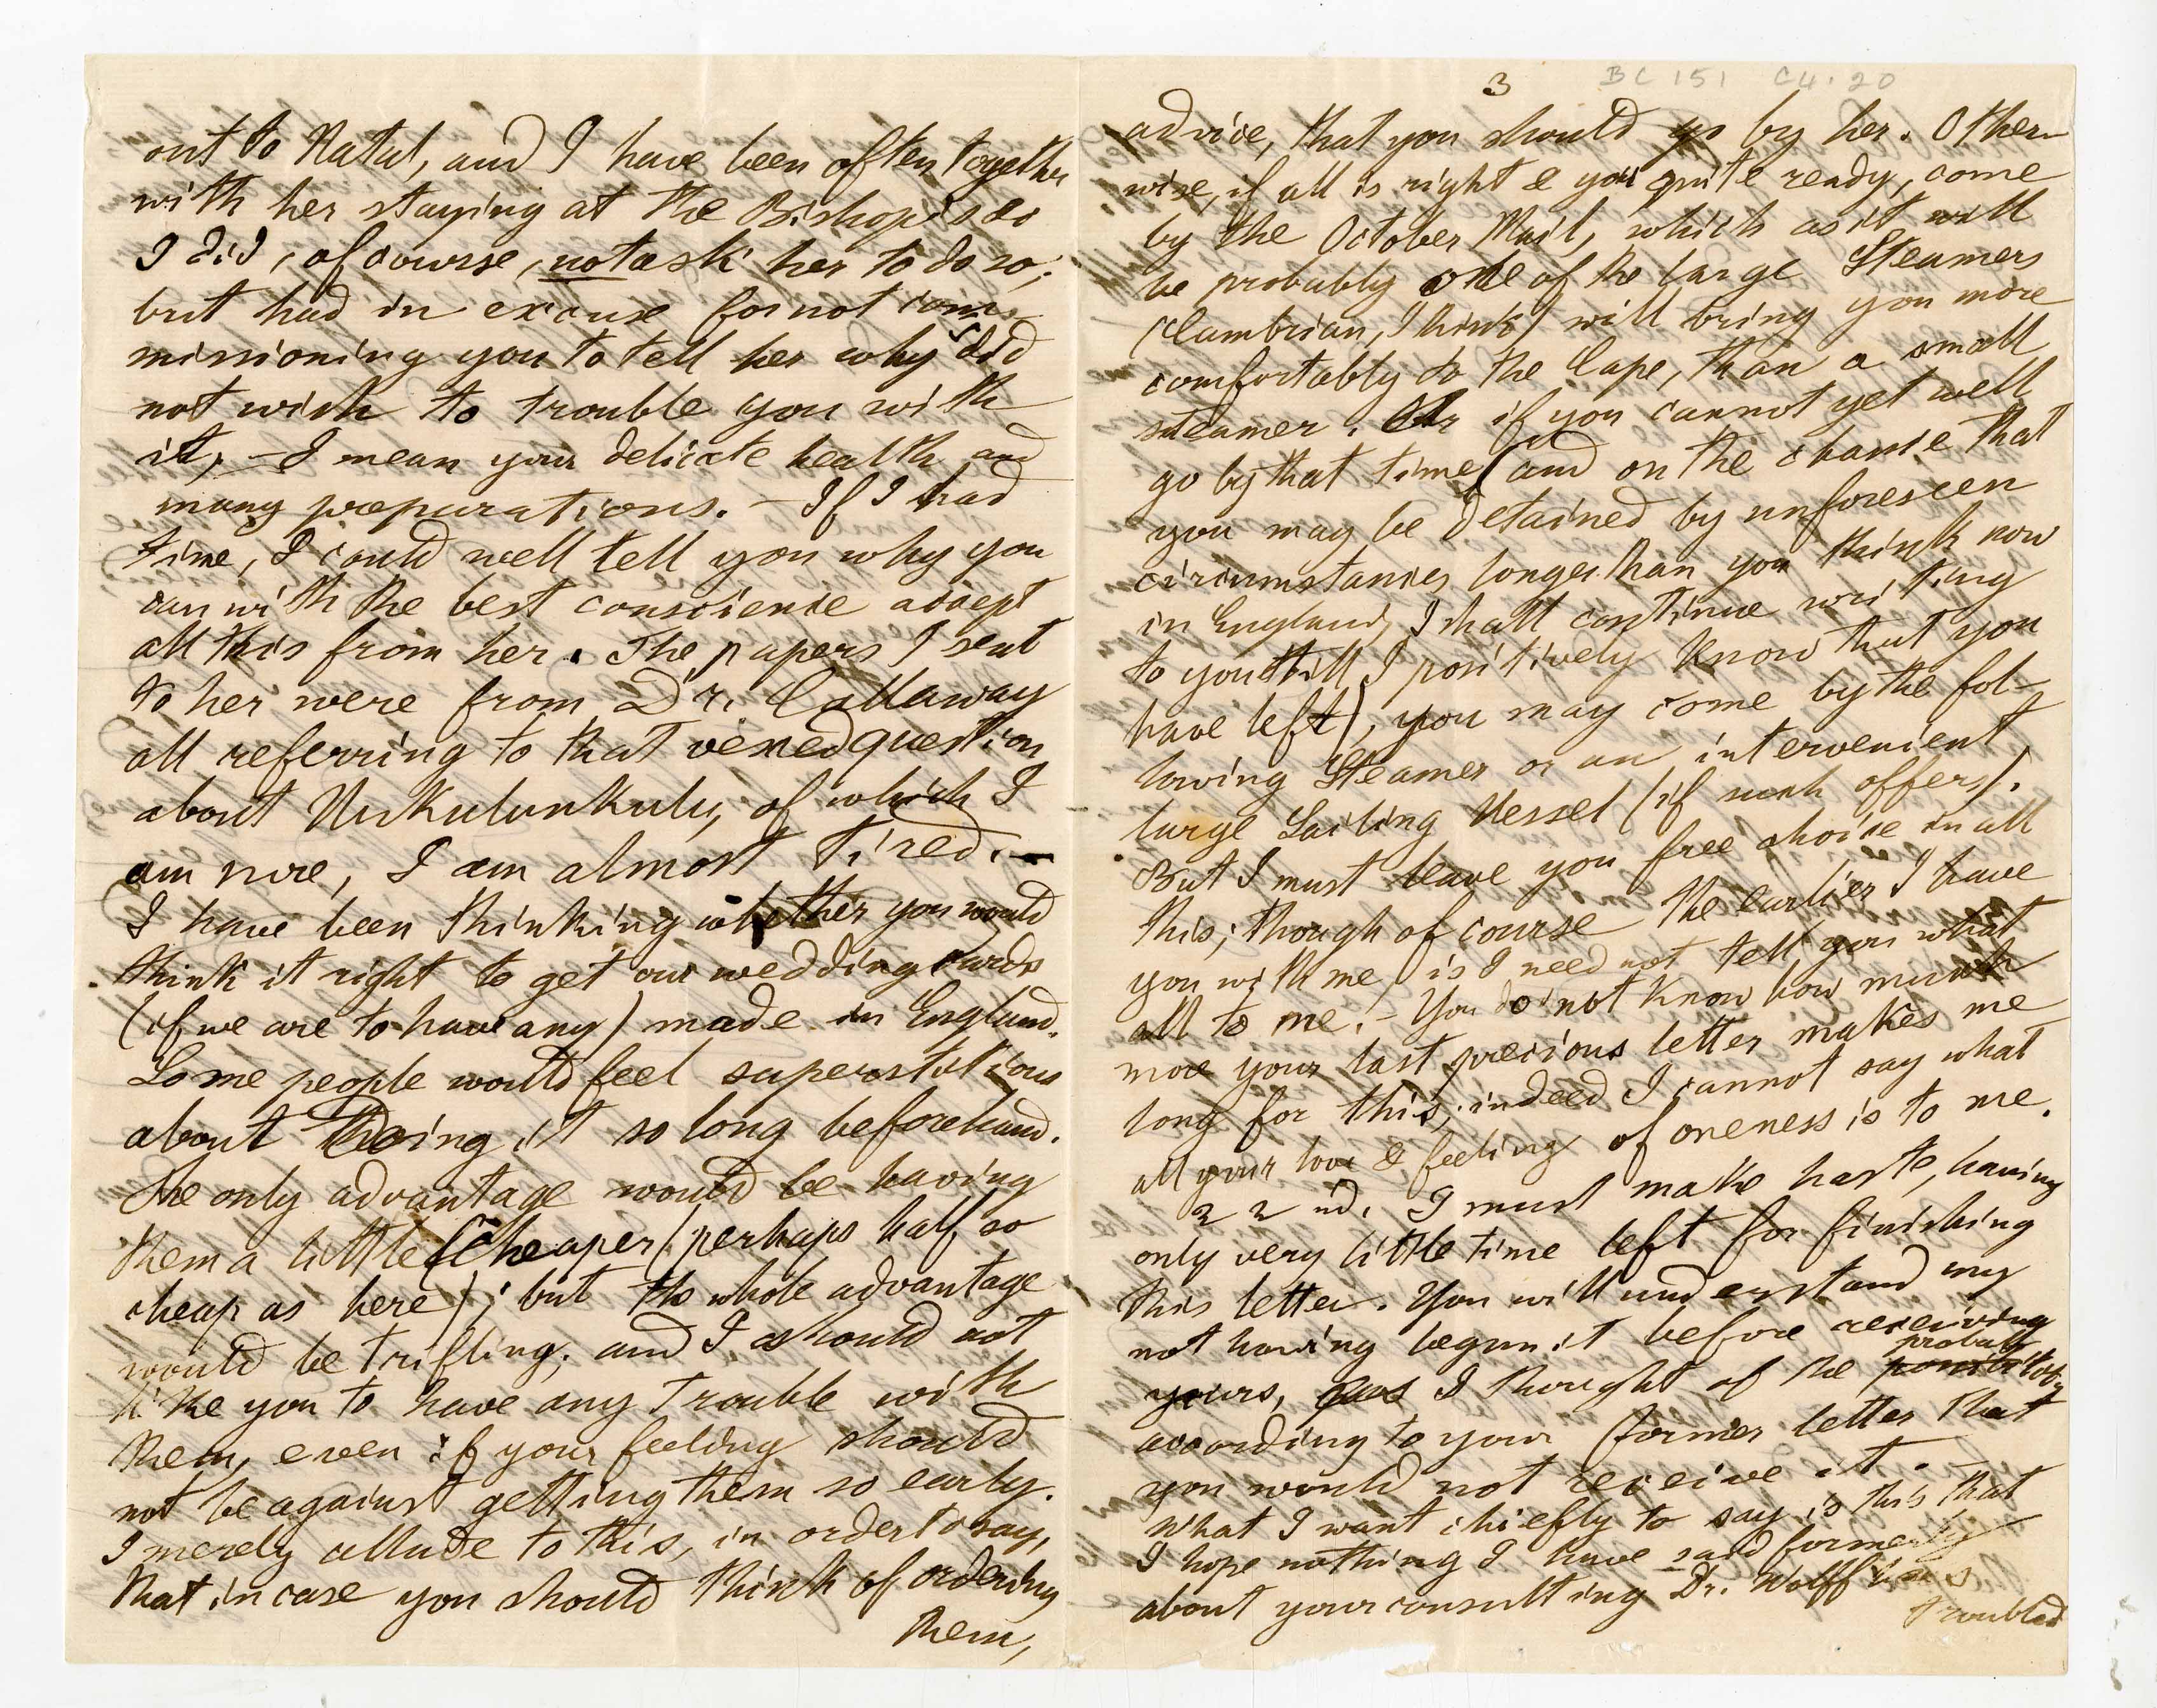 out to Natal, and I have been often together
with her staying at the Bishop's so
I did, of course, not ask her to do so;
but had in excuse for not com-
missioning you to tell her why did
not wish to trouble you with
it, – I mean your delicate health and
many preparations. – If I had
time, I could well tell you why you
can with the best conscience accept
all this from her. The papers I sent
to her were from Dr. Callaway
all referring to that vexed question
about Unkulunkulu, of which I
am sure, I am almost tired. –
I have been thinking whether you would
think it right to get our wedding cards
(if we are to have any) made in England.
Some people would feel superstitious
about doing it so long beforehand.
The only advantage would be having
them a little cheaper (perhaps half so
cheap as here); but the whole advantage
would be trifling; and I should not
like you to have any trouble with
them, even if your feeling should
not be against getting them so early.
I merely allude to this, in order to say,
that in case you should think of ordering
them,
3 BC 151 C4.20
advice, that you should go by her. Other-
wise, if all is right & you quite ready, come
by the October Mail, which as it will
be probably one of the large Steamers
(Cambrian, I think) will bring you more
comfortably to the Cape, than a small
steamer. Or if you cannot yet well
go by that time (and on the chance that
you may be detained by unforeseen
circumstances longer than you think now
in England, I shall continue writing
to you till I positively know that you
have left), you may come by the fol-
lowing Steamer or an intervenient
large Sailing Vessel (if such offers).
But I must leave you free choice in all
this; though of course the earlier I have
you with me is I need not tell you what
all to me. – You do not know how much
more your last precious letter makes me
long for this; indeed I cannot say what
all your love & feeling of oneness is to me.
22nd. I must make haste, having
only very little time left for finishing
this letter. You will understand my
not having begun it before receiving
yours, as I thought of the probability
according to your former letter that
you would not receive it. –
What I want chiefly to say is this that
I hope nothing I have said formerly
about your consulting Dr. Wolff has
troubled